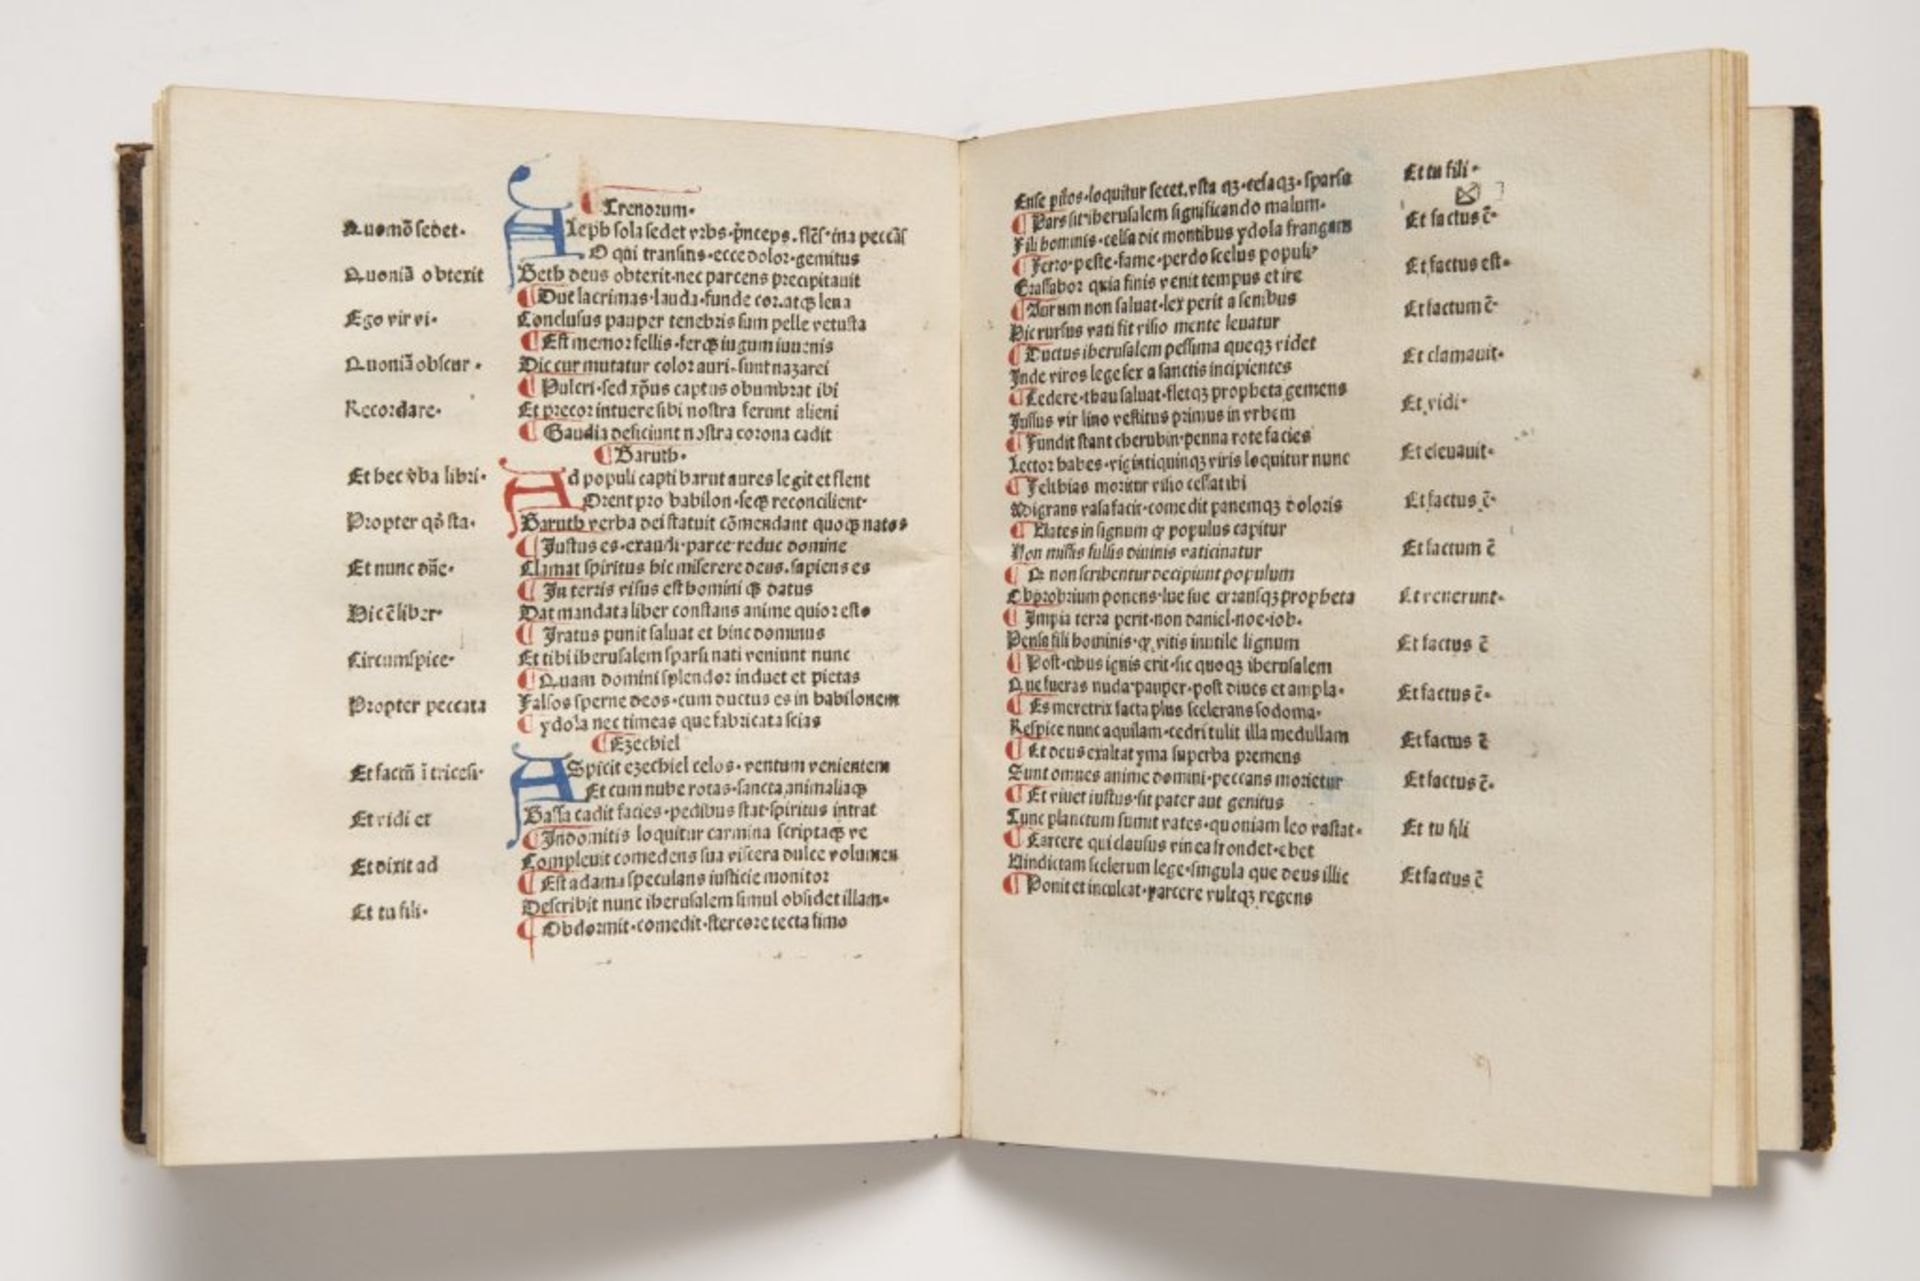 Trenorum.
Quomō sedet.
Aleph sola sedet vrbs.
O qui transitis.ecce dolor.gemitus
Quoniā obtexit
Beth deus obtexit.nec parcens precipitauit
Duc lacrimas.lauda.funde cor.atqꝫ lena
Ego vir vi.
Conclusus pauper tenebris sum pelle vetusta
Est memor fellis.ferqꝫ iugum iuuenis
Quoniā obscur.
Dic cur mutatur color auri.sunt nazarei
Pulcri.sed xp̄us captus obumbrat ibi
Recordare.
Et precor intuere sibi nostra ferunt alieni
Gaudia deficiunt nostra corona cadit
Baruth.
Et hec v̄ba libri.
Ad populi capti barut aures legit et flent
Orent pro babilon.seqꝫ reconcilient.
Propter qd̄ sta.
Baruth verba dei statuit cōmendant quoqꝫ natos
Justus es.exaudi.parce reduc domine
Et nunc dn̄e.
Clamat spiritus hic miserere deus.sapiens es
In terris visus est homini qꝫ datus
Hic ē liber.
Dat mandata liber constans anime quior esto
Iratus punit saluat et hinc dominus
Circumspice.
Et tibi iherusalem sparsi nati veniunt nunc
Quam domini splendor induet et pietas
Propter peccata
Falsos sperne deos.cum ductus es in babilonem
ydola nec timeas que fabricata scias
Ezechiel
Et factū ī tricesi.
ASpicit ezechiel celos.ventum venientem
Et cum nube rotas.sancta animaliaqꝫ
Et vidi et
Bassa cadit facies.pedibus stat.spiritus intrat
Indomitis loquitur carmina scriptaqꝫ ve
Et dixit ad
Compleuit comedens sua viscera dulce volumen
Est adama speculans iusticie monitor
Et tu fili.
Describit nunc iherusalem simul obsidet illam.
Obdormit.comedit.stercore tecta fimo
Et tu fili.
Ense pilos.loquitur secet.vsta qꝫ.tesaqꝫ.sparsa
Pars sit iherusalem significando malum.
Et factus ē.
Fili hominis.celsa dic montibus ydola frangam
Ferro.peste.fame.perdo scelus populi.
Et factus est.
Crassabor quia finis venit tempus et ire
Aurum non saluat.lex perit a senibus
Et factum ē.
Hic rursus vati fit visio mente leuatur
Ductus iherusalem pessima queqꝫ videt
Et clamauit.
Inde viros lege sex a sanctis incipientes
Cedere.thau saluat.fletqꝫ propheta gemens
Et vidi.
Jussus vir lino vestitus prunas in vrbem
Fundit stant cherubin.penna rote facies
Et eleuauit.
Lector habes.vigintiquinqꝫ viris loquitur nunc
Feltias moritur visio cessat ibi
Et factus ē.
Migrans vasa facit.comedit panemqꝫ doloris
Vates in signum qꝫ populus capitur
Et factum ē
Non missis fultis diuinis vaticinatur
non scribentur decipiunt populum
Et venerunt.
Obprobrium ponens.lue sue erransqꝫ propheta
Impia terra perit.non daniel.noe.iob.
Et factus ē
Pense fili hominis.qꝫ vitis inutile lignum
Post.cibus ignis erit.sic quoqꝫ iherusalem
Et factus ē.
Que fueras nuda.pauper.post diues et ampla.
Es meretrix facta plus scelerans sodoma.
Et factus ē
Respice nunc aquilam.cedri tulit illa medullam
Et deus exaltat yma superba premens
Et factus ē.
Sunt omnes anime domini.peccans morietur
Et viuet iustus.sit pater aut genitus
Et tu fili
Tunc planctum sumit vates.quoniam leo vastat.
Carcere qui clausus vinea frondet.ebet
Et factus ē
Vindictam scelerum lege.singula que deus illic
Ponit et inculcat.parcere vultqꝫ regens